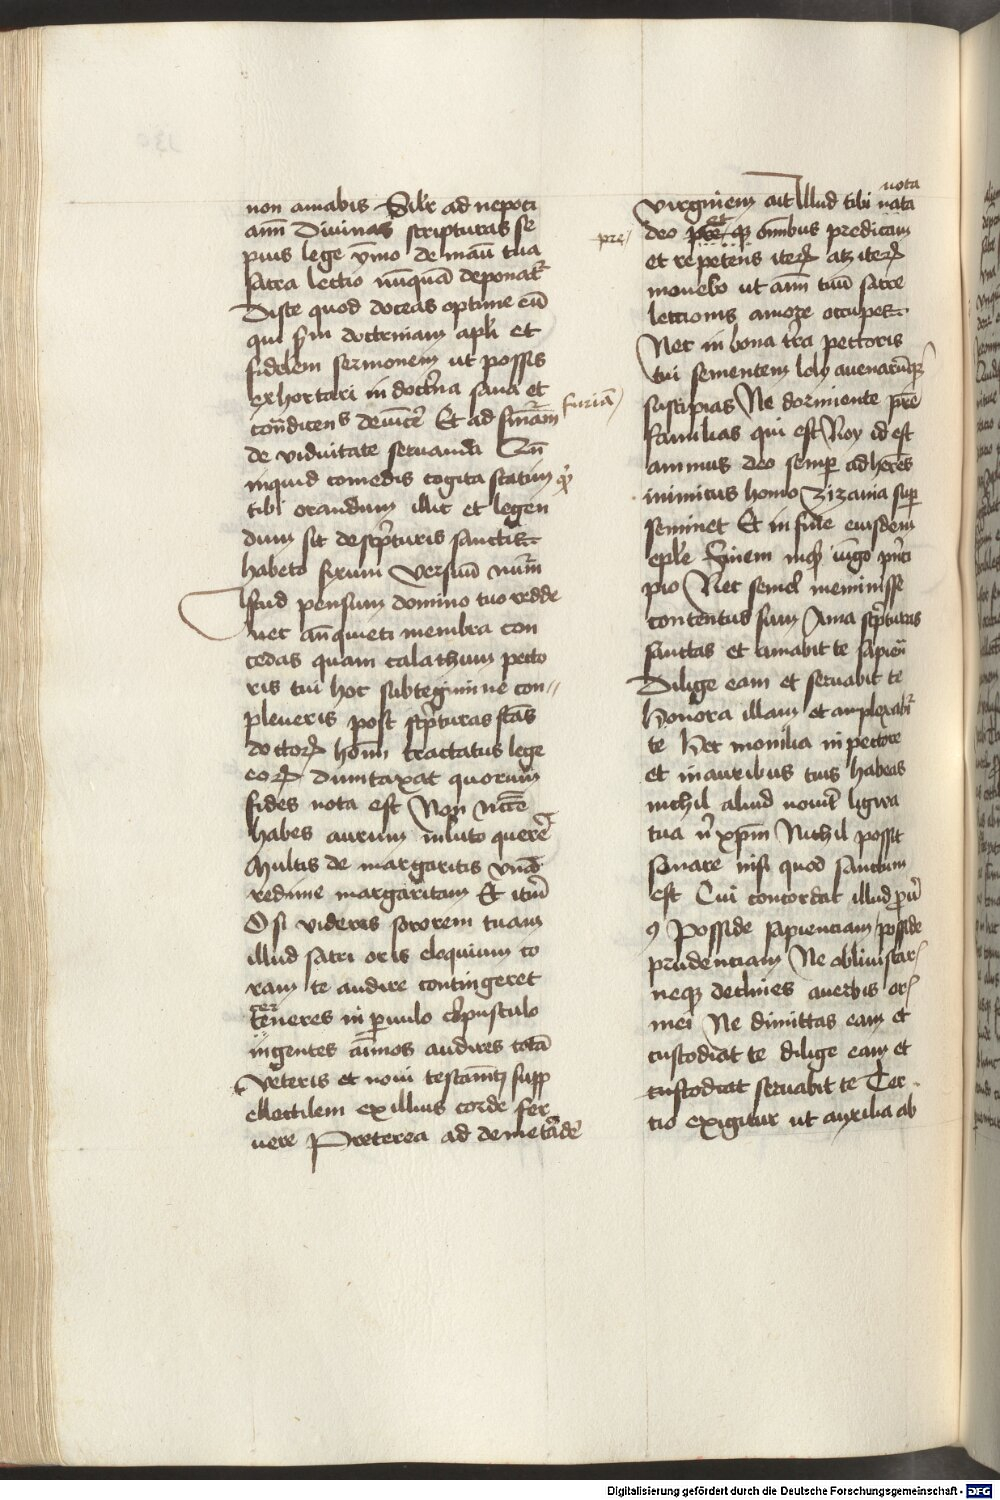 non amabis Sil'r ad nepoci
anū Divinas scripturas se
pius lege ȳmo de manū tua
sacra lectio nūquā deponat'
Disce quod doceas optine eū
qui scd'm doctrinam apl'i et
fidelem sermonem ut possis
exhortari in doct'na sana et
cōt'dicens devīce' Et ad fm̄am furiā
de viduitate servanda Cū
inquid comedis cogita statim q'
tibi orandum illic et legen
dum sit de scp'turis sanctis
habeto fixum versuū num̄
Istud pensum domino tuo redde
nec an̄ quieti membra con
cedas quam calathum pecto
ris tui hoc subtegimine con
pleueris post scp'turas sc̄as
doctoꝝ hom̄ tractatus lege
eoꝝ dumtaxat quorum
fides nota est Non nc̄c̄e
habes aurum in luto quere'
Multis de margaritis unā
redime margaritam Et itm̄
O si videres sororem tuam
illud sacri oris eloquium co
ram te audire contingeret
cer
teneres in paruulo corpusculo
ingentes aīmos audires totā
veteris et noui testam̄ti supp
ellectilem ex illius corde fer
uere Preterea ad demetiadē
nota
virginem ait Illud tibi nata
pre et
deo pre qȝ omībus predicam
et repetens iteꝝ atqȝ iteꝝ
monebo ut anm̄ tuū sacre
lectionis amore occupes
Nec in bona t'ra pectoris
tui sementem lolij auenarūqȝ
suscipias Ne dormiente pr̄e
familias qui est Noy id est
animus deo semper adherēs
inimicus homo zizania sup
seminet Et in fine eiusdem
ep'le Finem inqȝ iūgo p'nci
pio Nec semel meminisse
contentus sum Ama scp'turas
sanctas et amabit te sapien'
Dilige eam et seruabit te
Honora illam et amplexabit'
te Hec monilia in pectore
et in auribus tuis habeas
nichil aliud nouit' ligwa
tua n' xp̄m Nichil possit
sonare nisi quod sanctum
est Cui concordat illud prou'
9 Posside sapienciam posside
prudenciam Ne obliuiscar'
neqȝ declines a uerbis or'
mei Ne dimittas eam et
custodiat te dilige eam et
custodiat seruabit te Ter
cio exigitur ut auxilia ab
Digitalisierung gefördert durch die Deutsche Forschungsgemeinschaft - DFG